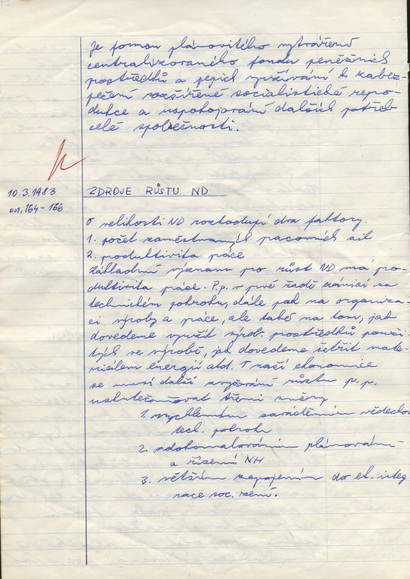 je formou plánovitého vytváření
centralizovaného fondu peněžních
prostředků a jejich využívání k zabez-
pečení rozšířené socialistické repro-
dukce a uspokojování dalších potřeb
celé společnosti.
10.3.1983
ZDROJE RŮSTU ND
str. 164-166
O velikosti ND rozhodují dva faktory.
1. počet zaměstnaných pracovních sil
2. produktivita práce
Základní význam pro růst ND má pro-
duktivita práce. P.p. v prvé řadě závisí na
technickém pokroku, dále pak na organiza-
ci výroby a práce, ale také na tom, jak
dovedeme využít výrob. prostředků použi-
tých ve výrobě, jak dovedeme šetřit mate-
riálem energií atd. V naší ekonomice
se musí další zvyšování růstu p.p.
uskutečňovat třemi směry
1. rychlejším zaváděním vědecko
tech. pokroku
2. zdokonalováním plánování
a řízení NH
3. větším zapojením do ek. integ
race soc. zemí.